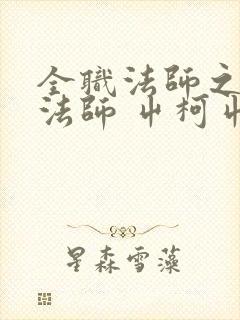 全職法師之
法師 屮柯屮
星森雪藻